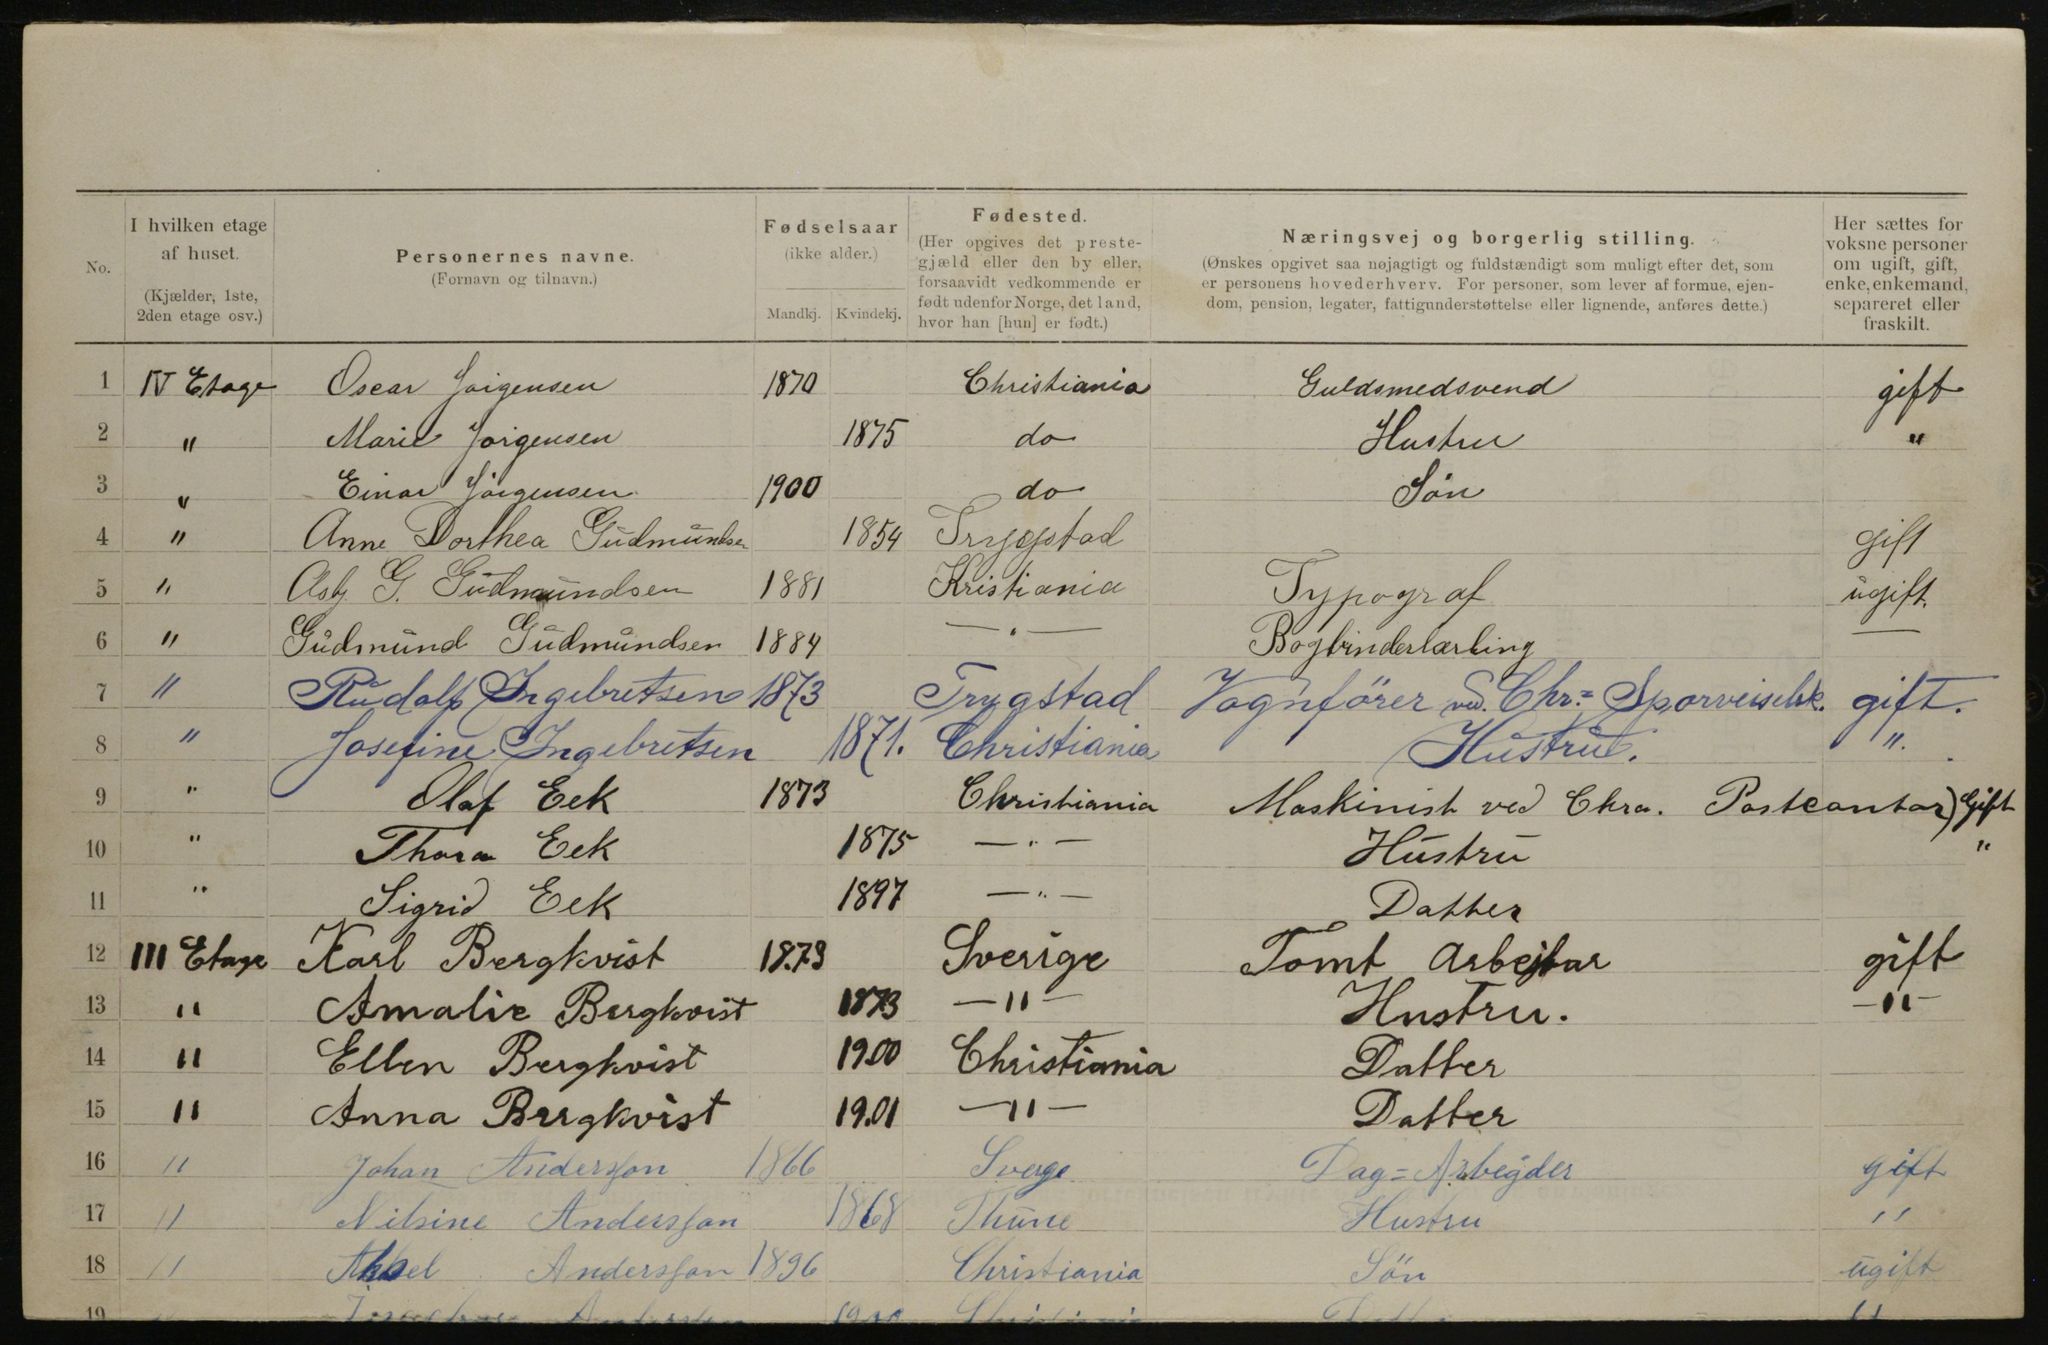 No. | I hvilken etage af huset. (Kjælder, 1ste, 2den etage osv.) | Personernes navne. (Fornavn og tilnavn.) | Fødselsaar (ikke alder.) Mandkj. Kvindekj. | Fødested. (Her opgives det prestegjæld eller den by eller, forsaavidt vedkommende er født udenfor Norge, det land, hvor han [hun] er født.) | Næringsvej og borgerlig stilling. (Ønskes opgivet saa nøjagtigt og fuldstændigt som muligt efter det, som er personens hovederhverv. For personer, som lever af formue, ejendom, pension, legater, fattigunderstøttelse eller lignende, anføres dette.) | Her sættes for voksne personer om ugift, gift, enke, enkemand, separeret eller fraskilt.
1 IV Etage Oscar Jørgensen 1870 Christiania Guldsmedsvend gift
2 " Marie Jørgensen 1875 do Hustru "
3 " Einar Jørgensen 1900 do Søn
4 " Anne Dorthea Gudmundsen 1854 Tryggstad gift
5 " Asbj. G. Gudmundsen 1881 Kristiania Typograf ugift.
6 " Gudmund Gudmundsen 1884 —"— Bogbinderlærling —
7 " Rudolf Ingebretsen 1873 Trygstad Vognfører ved. Chr= Sporveiselsk. gift.
8 " Josefine Ingebretsen 1871. Christiania Hustru. ".
9 " Olaf Eek 1873 Christiania Maskinist ved Chra. Postcontor) Gift
10 " Thora Eek 1875 —"— Hustru "
11 " Sigrid Eek 1897 —"— Datter
12 III Etage Karl Bergkvist 18.73 Sverige Tomt Arbejtar gift
13 " Amalie Bergkvist 1873 —"— Hustru. —"—
14 " Ellen Bergkvist 19.00 Christiania Datter
15 " Anna Bergkvist 19.01 —"— Datter
16 " Johan Andersson 1866 Sverge Dag=Arbeyder gift
17 " Nilsine Andersson 1868 Thune Hustru "
18 " Aksel Andersson 1896 Christiania Søn ugift
19